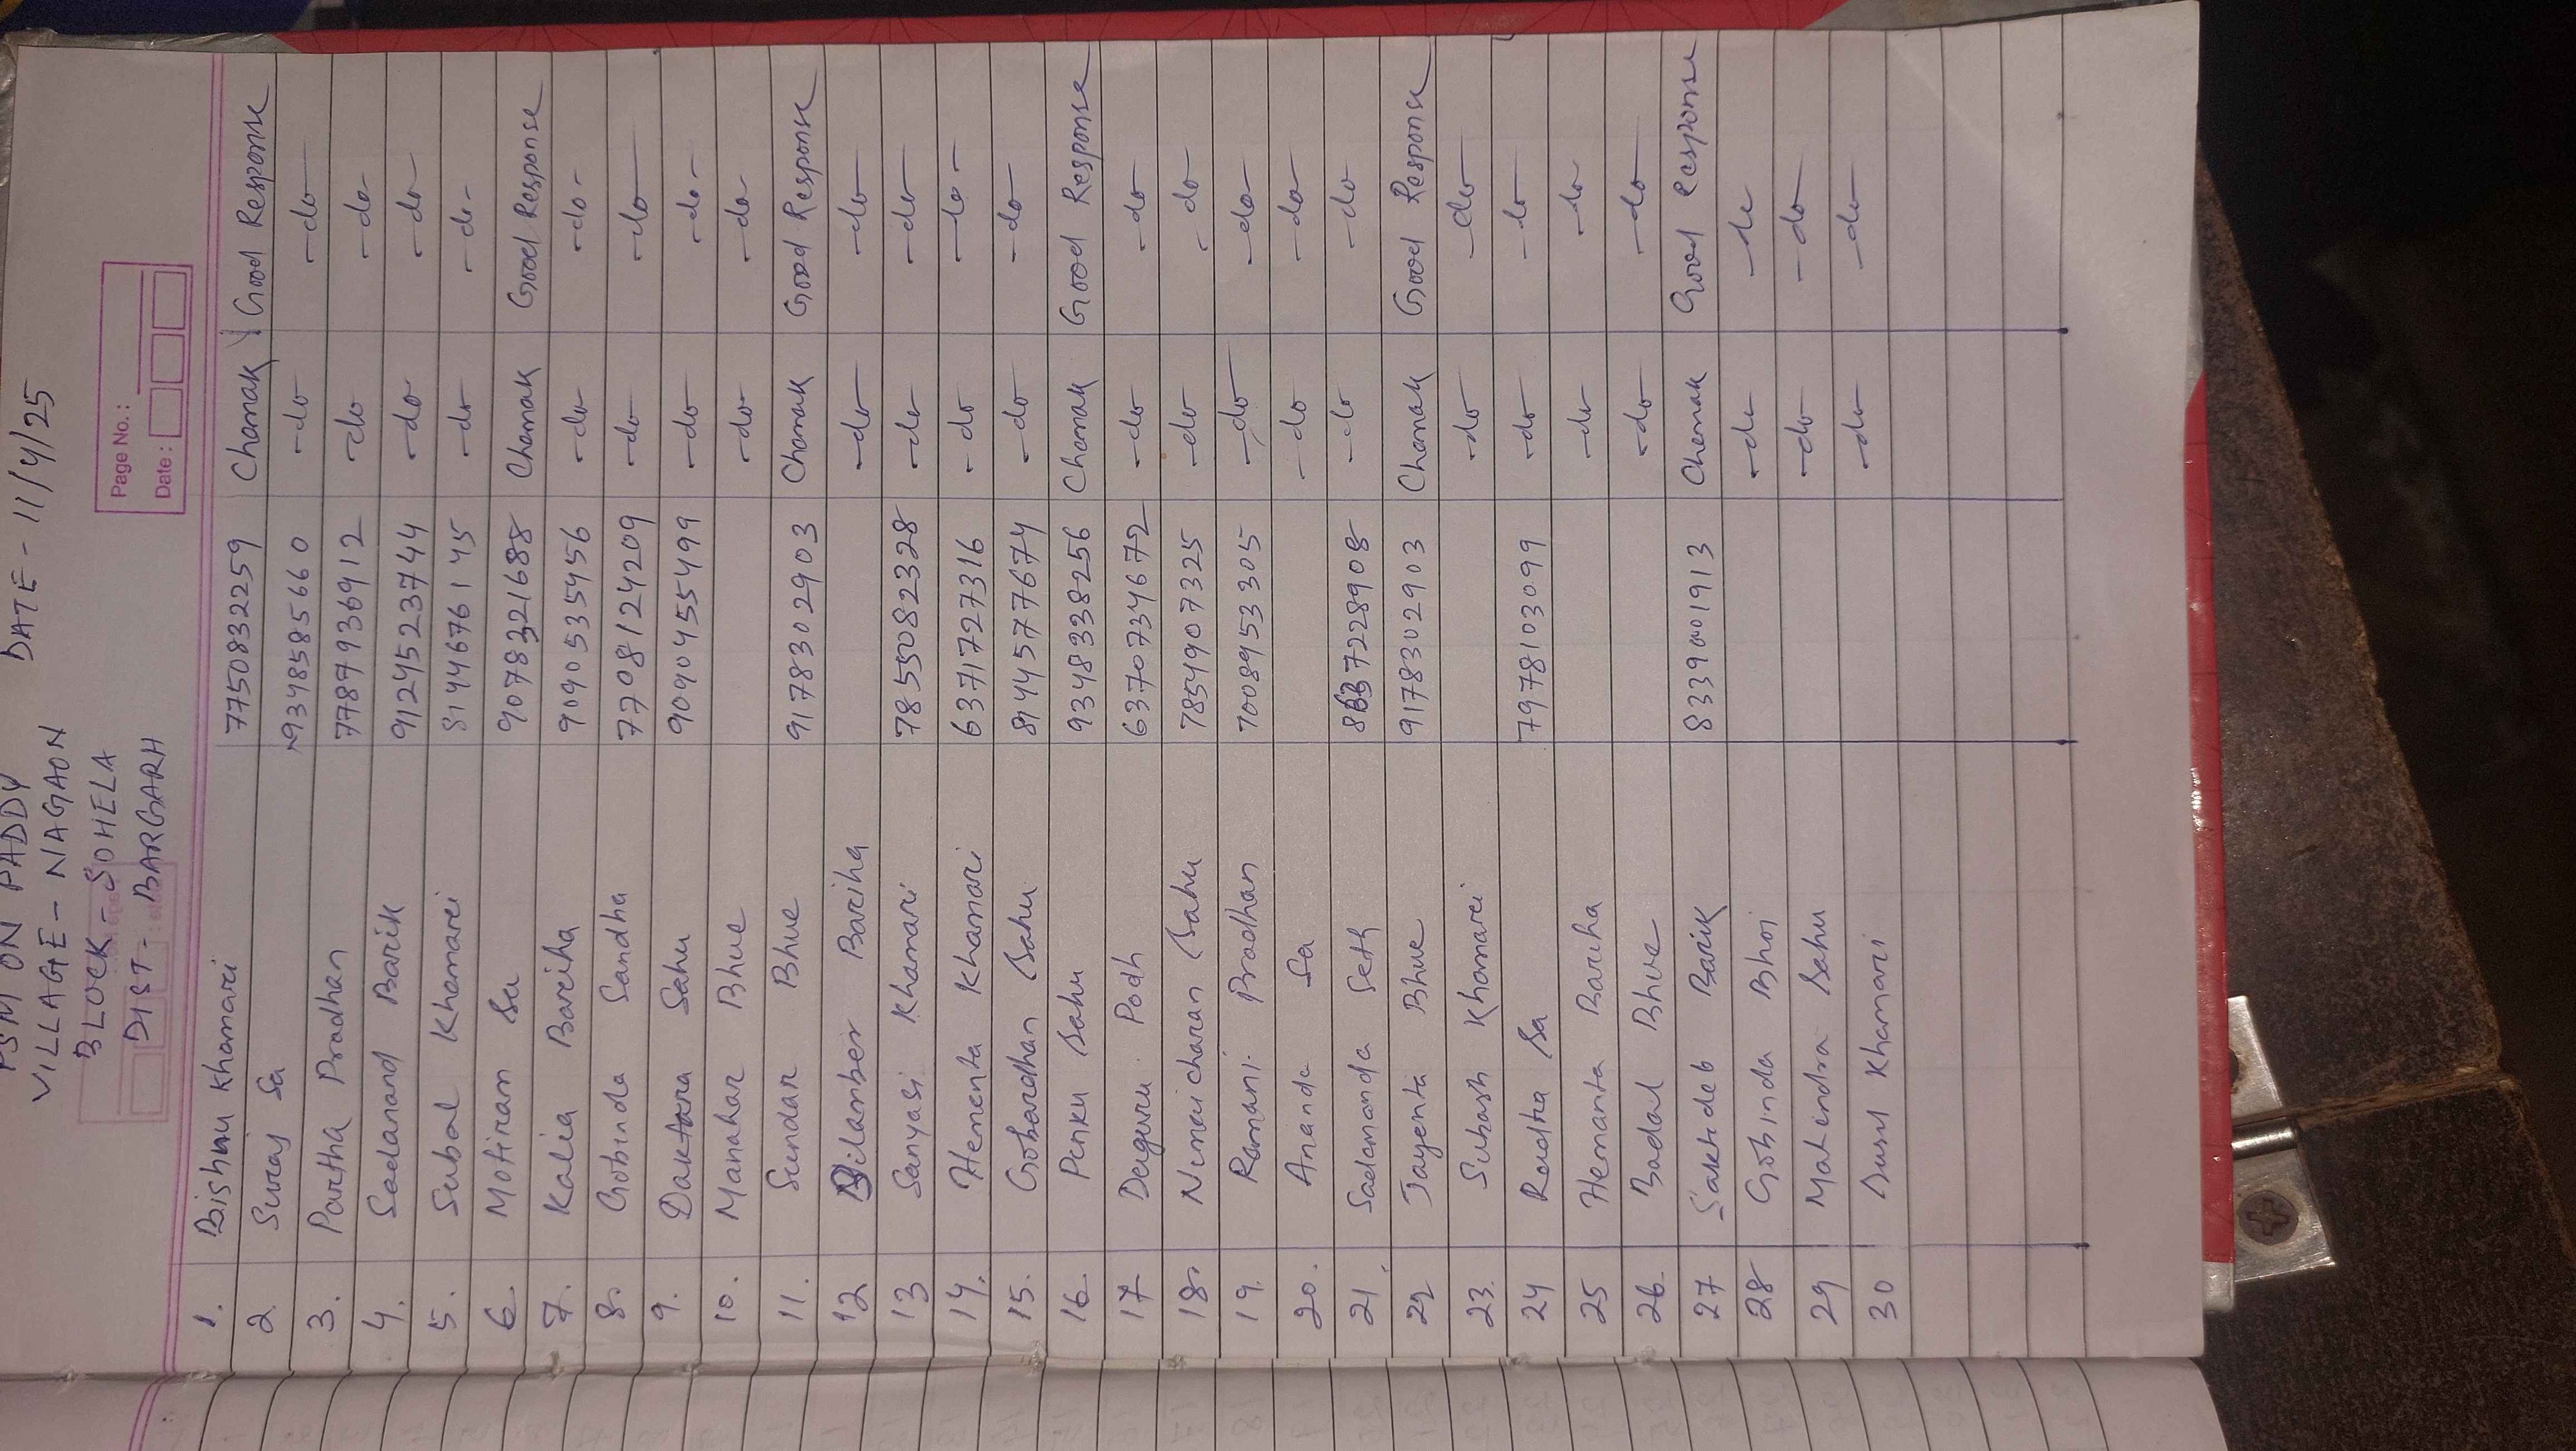 PSM ON PADDY DATE - 11/4/25
VILLAGE - NAGAON
BLOCK - SOHELA
DIST - BARGARH
Page No.:
Date:
1. Bishnu Khamari 7750832259 Chamak Good Response
2 Suraj Sa 9348585660 -do- -do-
3. Partha Pradhan 7787936912 -do -do-
4. Sadanand Barik 9124523744 -do- -do-
5. Subal Khamari 8144676145 -do- -do-
6. Motiram Sa 9078321688 Chamak Good Response
7. Kalia Bariha 9090535456 -do- -do-
8. Gobinda Sandha 7708124209 -do- -do-
9. Daktara Sahu 9090455499 -do- -do-
10. Manahar Bhue -do- -do-
11. Sundar Bhue 9178302903 Chamak Good Response
12 Dilamber Bariha -do- -do-
13 Sanyasi Khamari 7855082328 -do- -do-
14. Hementa Khamari 6371727316 -do- -do-
15. Gobardhan Sahu 8144577674 -do- -do-
16. Pinku Sahu 9348338256 Chamak Good Response
17 Podh 6370734672 -do- -do-
18. Nimaicharan Sahu 7854907325 -do- -do-
19. Ramani Pradhan 7008953305 -do- -do-
20. Ananda Sa -do -do-
21. Sadananda Seth -do -do
22 Jayenta Bhue 9178302903 Chamak Good Response
23. Subash Khamari -do- -do-
24 Roudra Sa 7978103099 -do- -do-
25 Hemanta Bariha -do- -do-
26. Badal Bhue -do- -do-
27 Sakhideb Barik Chamak Good Response
28 Gobinda Bhoi -do- -do
29 Mahindra Sahu -do- -do-
30 Khamari -do- -do-